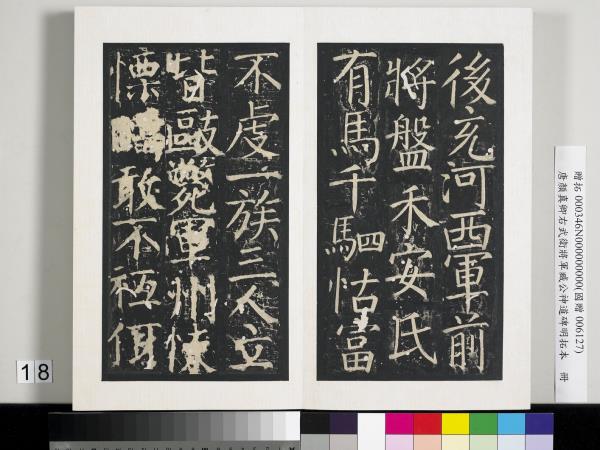 後充河西軍前
將盤禾安氏
有馬千駟怙富
不虔一族三人立
皆毆斃軍州悚
慄 敢不祗伏
贈拓 000346N000000000(國贈 006127)
唐顏真卿右武衛將軍臧公神道碑明拓本 冊
18